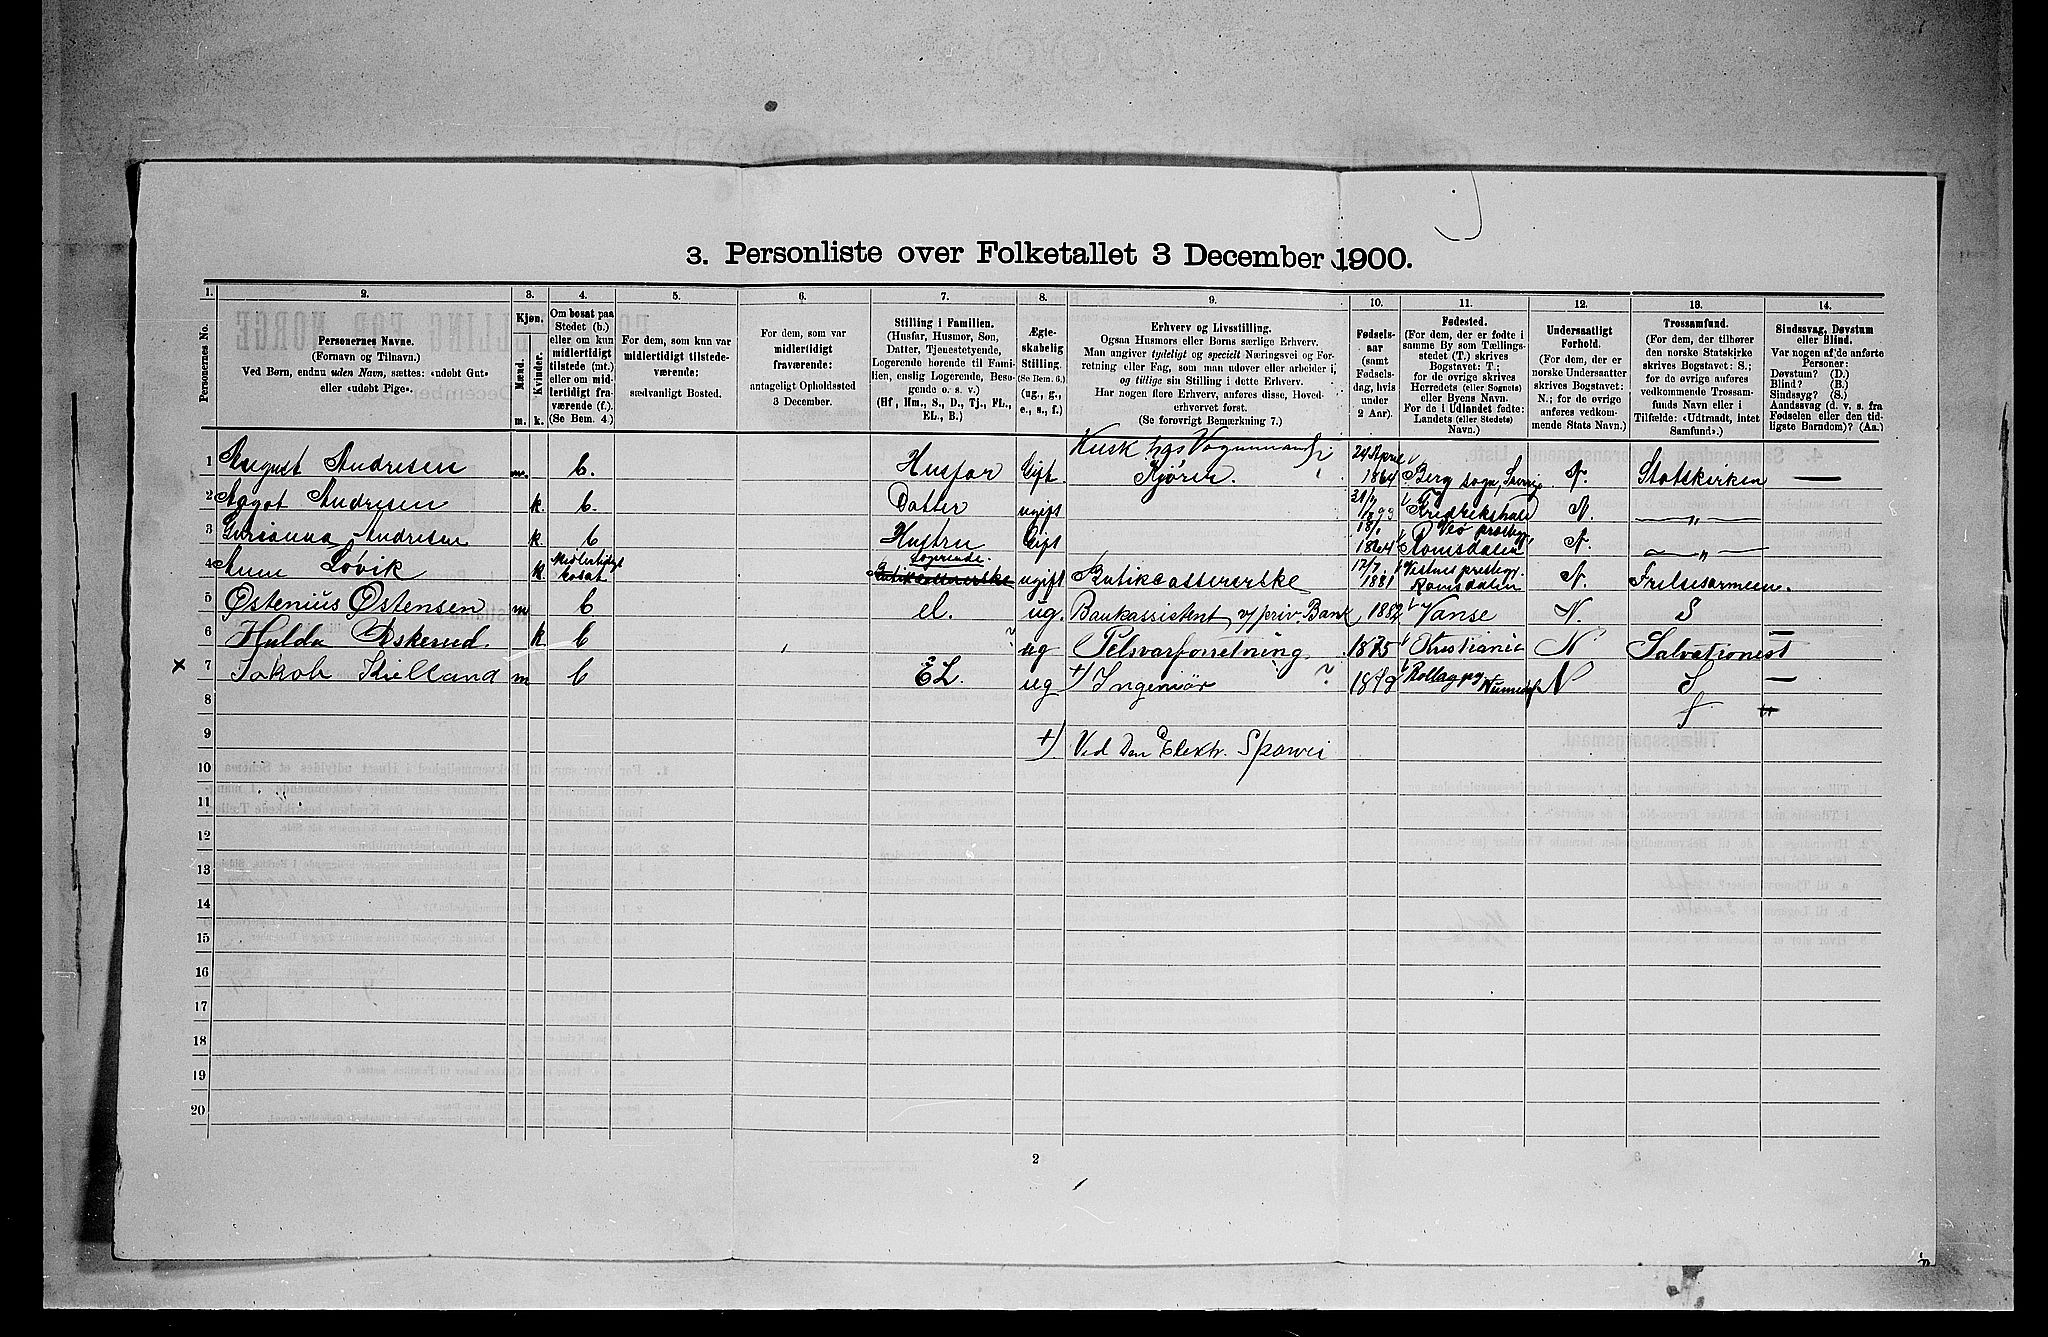 3. Personliste over Folketallet 3 December 1900.
1. 2. 3. 4. 5. 6. 7. 8. 9. 10. 11. 12. 13. 14.
Personernes No.
Personernes Navne.
(Fornavn og Tilnavn.)
Ved Børn, endnu uden Navn, sættes: «udøbt Gut»
eller «udøbt Pige».
Kjøn.
Mænd.
Kvinder.
m. k.
Om bosat paa
Stedet (b.)
eller om kun
midlertidigt
tilstede (mt.)
eller om mid-
lertidigt fra-
værende (f.).
(Se Bem. 4.)
For dem, som kun var
midlertidigt tilstede-
værende:
sædvanligt Bosted.
For dem, som var
midlertidigt
fraværende:
antageligt Opholdssted
3 December.
Stilling i Familien.
(Husfar, Husmor, Søn,
Datter, Tjenestetyende,
Logerende hørende til Fami-
lien, enslig Logerende, Besø-
gende o. s. v.)
(Hf, Hm., S., D., Tj., FL.,
EL., B.)
Ægte-
skabelig
Stilling.
(Se Bem. 6.)
(ug., g.,
e., s., f.)
Erhverv og Livsstilling.
Ogsaa Husmors eller Børns særlige Erhverv.
Man angiver tydeligt og specielt Næringsvei og For-
retning eller Fag, som man udøver eller arbeider i,
og tillige sin Stilling i dette Erhverv.
Har nogen flere Erhverv, anføres disse, Hoved-
erhvervet først.
(Se forøvrigt Bemærkning 7.)
Fødsels-
aar
(samt
Fødsels-
dag, hvis
under
2 Aar).
Fødested.
(For dem, der er fødte i
samme By som Tællings-
stedet (T.) skrives
Bogstavet: T.;
for de øvrige skrives
Herredets (eller Sognets)
eller Byens Navn.
For de i Udlandet fødte:
Landets (eller Stedets)
Navn.)
Undersaatligt
Forhold.
(For dem, der er
norske Undersaatter
skrives Bogstavet:
N.; for de øvrige
anføres vedkom-
mende Stats Navn.)
Trossamfund.
(For dem, der tilhører
den norske Statskirke
skrives Bogstavet: S.;
for de øvrige anføres
vedkommende Trossam-
funds Navn eller i
Tilfælde: «Udtraadt, intet
Samfund».)
Sindssvag, Døvstum
eller Blind.
Var nogen af de anførte
Personer:
Døvstum? (D.)
Blind? (B.)
Sindssyg? (S.)
Aandssvag (d. v. s. fra
Fødselen eller den tid-
ligste Barndom)? (Aa.)
1 August Andresen m. b. Husfar Gift Kusk hos Vognmand Kjøren. 24 April 1864 Berg sogn, N. Statskirken —
2 Aagot Andresen k. b. Datter ugift Fredrikshald N. — „ —
3 Andresen k. b Hustru Gift 1864 Veø Romsdalen N. — „ —
4 Anne Løvik k Midlertidigt bosat Logerende ugift Butikcassererske 12/7 1881 Romsdalen N. Frelsesarmeen.
5 Østenius Østensen m b el. ug. Bankassistent v/priv. Bank 1882 Vanse N. S
6 Hulda Askerud. k. b ug Pelsvarforretning 1875 Kristiania N Salvationest —
× 7 Jakob Kielland m b EL. ug +) Ingeniør ? Rollag N S —
8
9 +) Ved Den Elektr. Sporvei
10
11
12
13
14
15
16
17
18
19
20
2